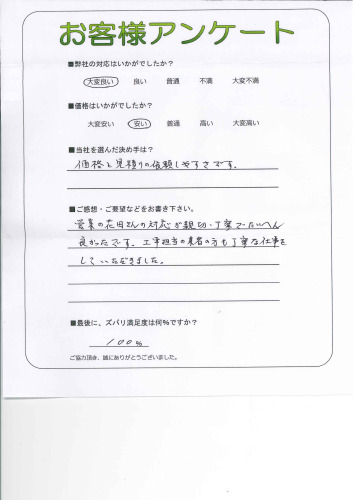 お客様アンケート
■弊社の対応はいかがでしたか？
大変良い 良い 普通 不満 大変不満
■価格はいかがでしたか？
大変安い 安い 普通 高い 大変高い
■当社を選んだ決め手は？
価格と見積りの依頼しやすさです。
■ご感想・ご要望などをお書き下さい。
営業の花田さんの対応が親切・丁寧でたいへん
良かったです。工事担当の業者の方も丁寧な仕事を
していただきました。
■最後に、ズバリ満足度は何％ですか？
100%
ご協力頂き、誠にありがとうございました。